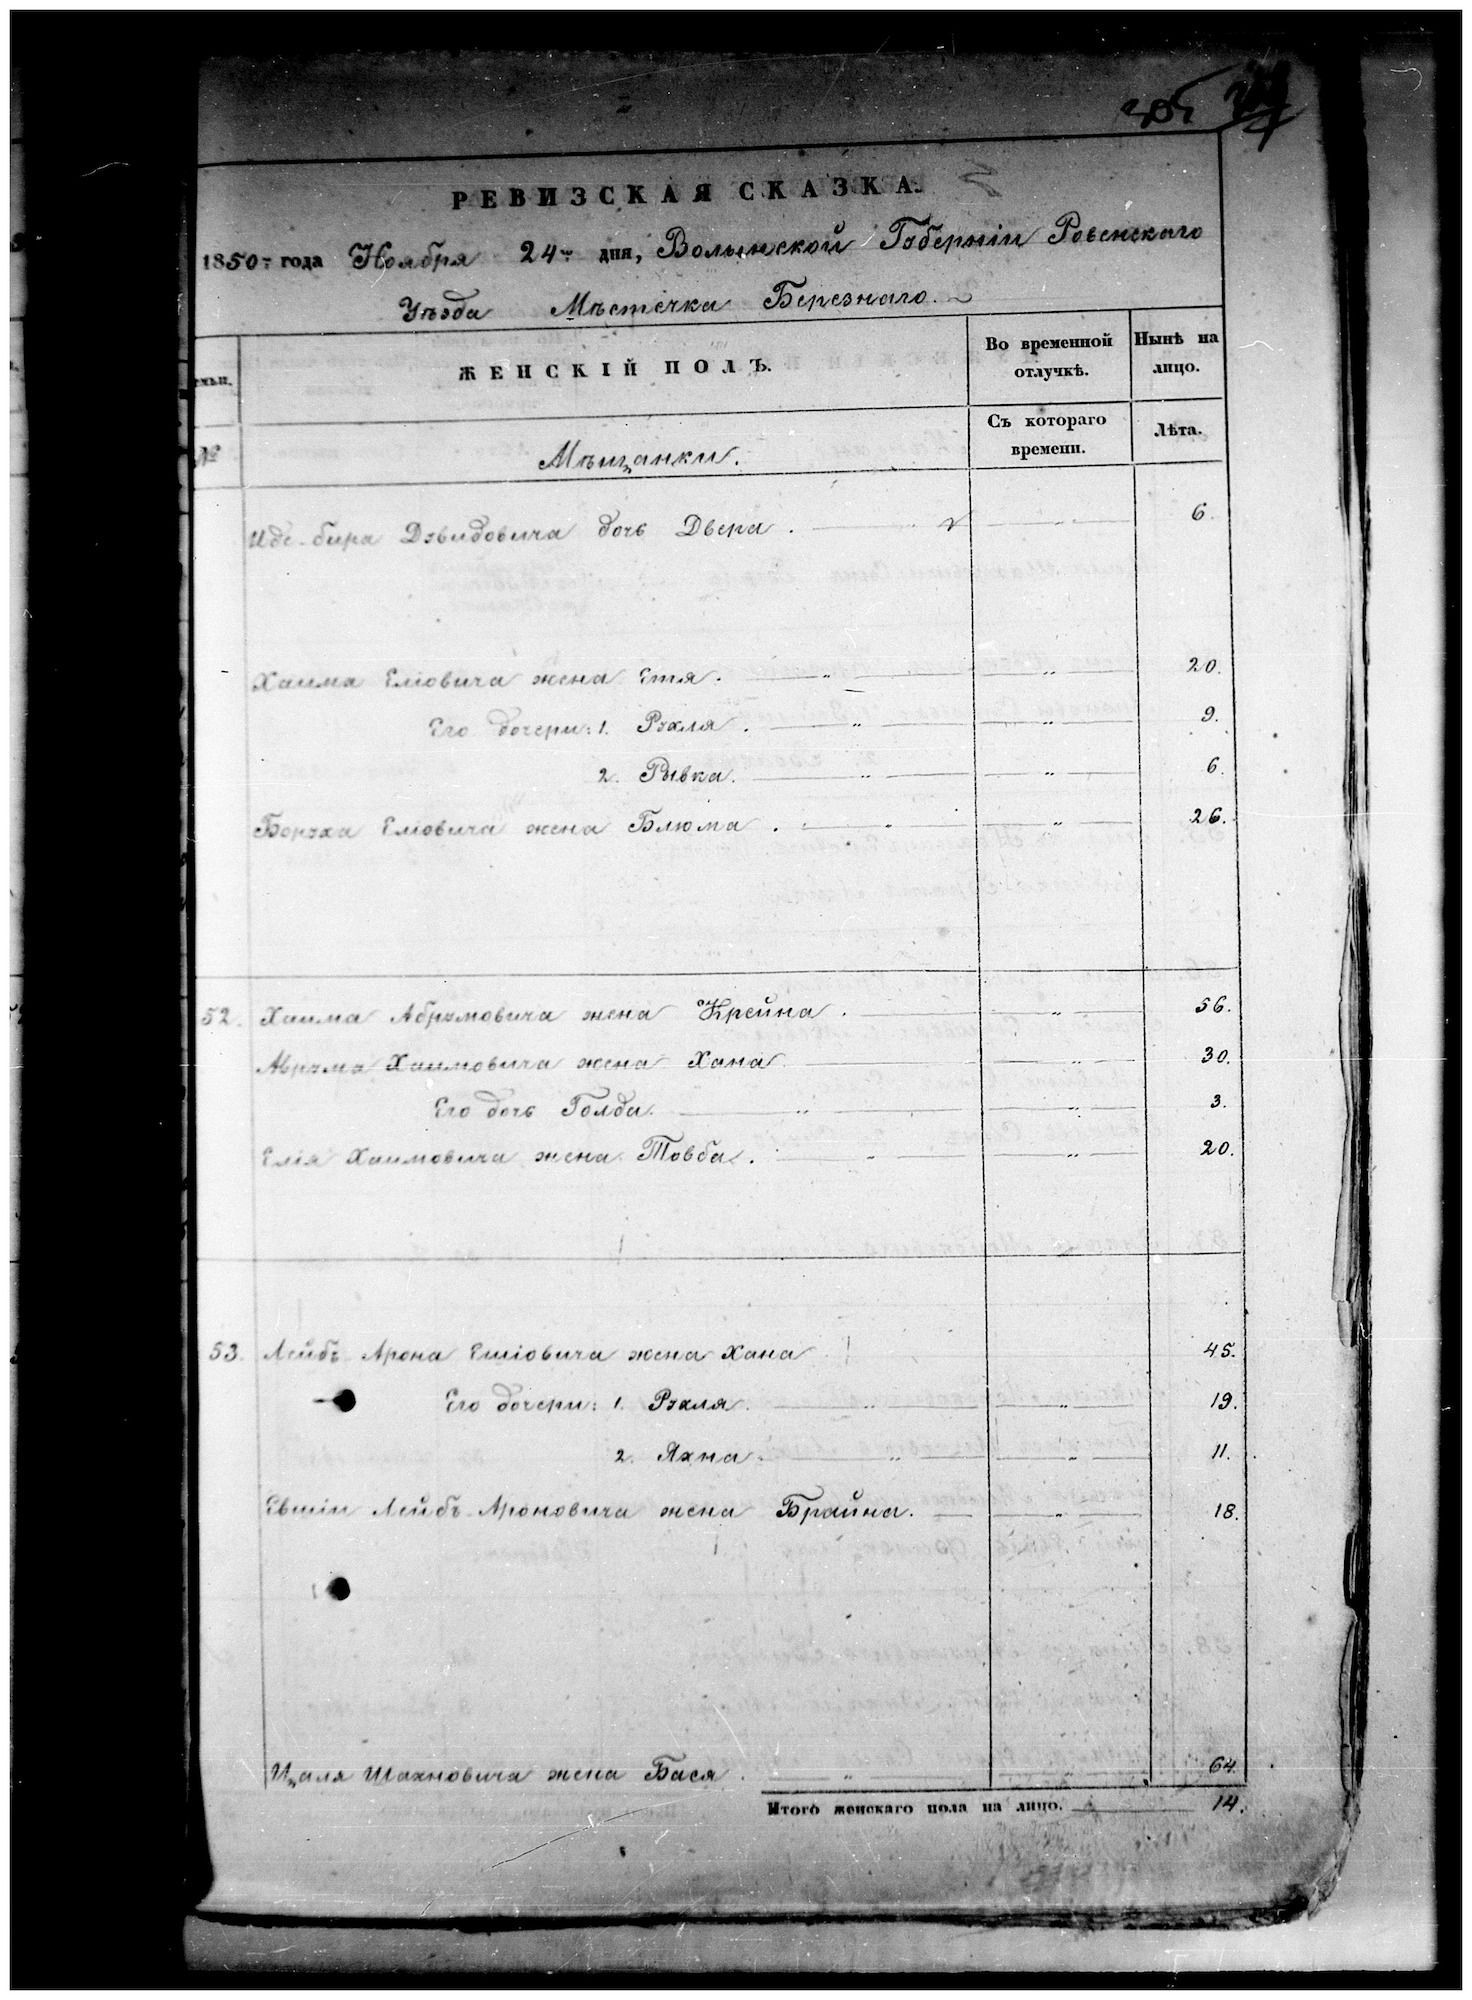 305
РЕВИЗСКАЯ СКАЗКА.
1850 года Ноября 24 дня, Волынской Губерніи Ровенскаго
Уѣзда Мѣстечка Березнаго.
ЖЕНСКІЙ ПОЛЪ.
Во временной отлучкѣ.
Нынѣ на лицо.
№
Мѣщанки.
Съ котораго времени.
Лѣта.
Дувидовича дочь Двера. 6.
Хаима Еліовича жена Етя. 20.
Его дочери: 1. Рухля. 9.
2. Рывка. 6.
Боруха Еліовича жена Блюма. 26.
52. Хаима Абрумовича жена Крейна. 56.
Аврума Хаимовича жена Хана. 30.
Его дочь Голда. 3.
Елія Хаимовича жена Товба. 20.
53. Лейбъ Арона жена Хана 45.
Его дочери: 1. Рухля. 19.
2. Яхна. 11.
Лейбъ Ароновича жена Брайна. 18.
Шахновича жена Бася. 64.
Итого женскаго пола на лицо. 14.